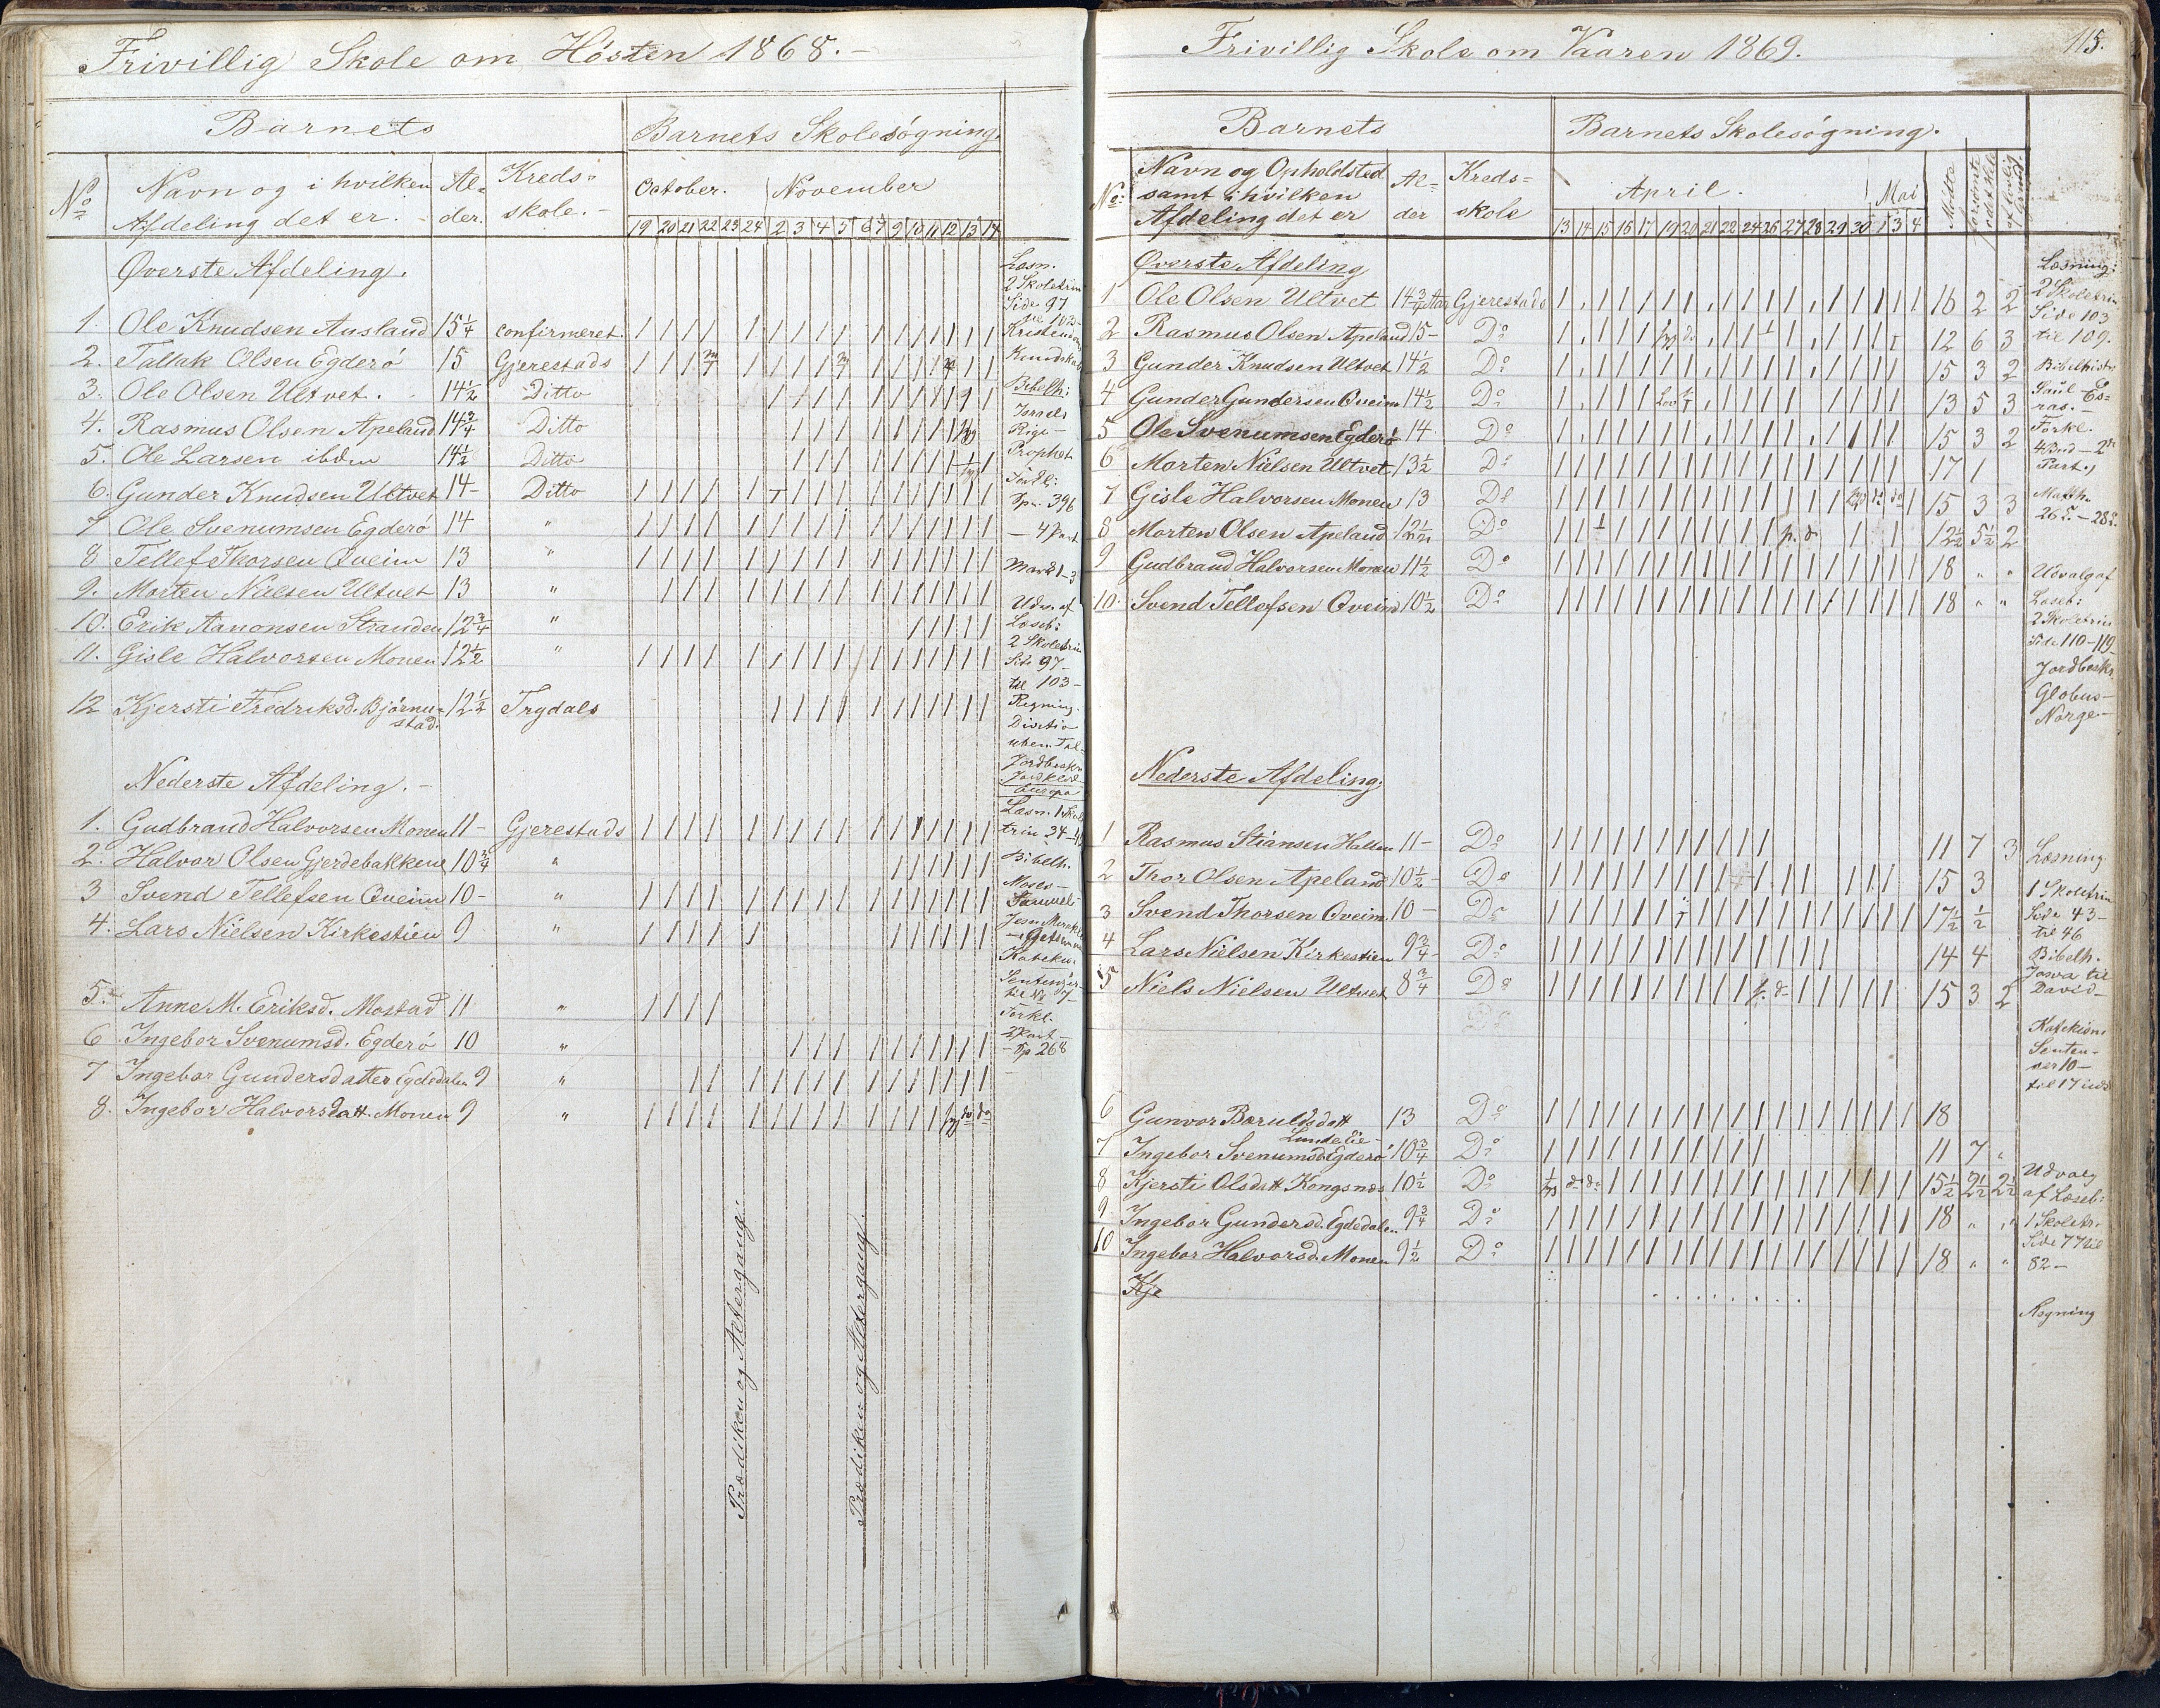 Frivillig Skole om Hösten 1868.-
Barnets
Barnets Skolesögning.
No
Navn og i hvilken
Afdeling det er. -
Al-
der.
Kreds-
skole. -
October. November
19 20 21 22 23 24 2 3 4 5 6 7 9 10 11 12 13 14
Øverste Afdeling.
1. Ole Knudsen Ausland 15 1/4 confirmeret.
2. Tallak Olsen Egderö 15 Gjerestads
3. Ole Olsen Ultvet. 14 1/2 Ditto
4. Rasmus Olsen Apeland 14 3/4 Ditto
5. Ole Larsen ibdm 14 1/2 Ditto
6. Gunder Knudsen Ultvet 14- Ditto
7 Ole Svenumsen Egderö 14 "
8 Tellef Thorsen Qveim 13 "
9. Morten Nielsen Ultvet 13 "
10. Erik Aanonsen Stranden 12 3/4 "
11. Gisle Halvorsen Monen 12 1/2 "
12 Kjersti Fredriksd. Björnu- 12 1/2 Trydals
stad.
Nederste Afdeling. -
1. Gudbrand Halvorsen Monen 11- Gjerestads
2. Halvor Olsen Gjerdebakken 10 3/4 "
3 Svend Tellefsen Qveim 10- "
4. Lars Nielsen Kirkestien 9 "
5. Anne M. Eriksd. Mostad 11 "
6 Ingebor Svenumsd. Egderö 10 "
7 Ingebor Gundersdatter Egdedalen 9 "
8. Ingebor Halvorsdatt. Monen 9 "
Prædiken og Altergang.
Prædiken og Altergang.
Læsn.
2 Skoletrin
Side 97
til 103-
Kristendoms
Kundskab
Bibelh:
Israels
Rige-
Prophet
Forkl:
Sp. 396
- 4 Part
Mark 1-3
Udv. af
Læseb:
2 Skoletrin
Side 97-
til 103-
Regning.
Division
uben. Tal-
Jordbeskr
Europa
Læsn. 1 Skole
trin 34-
Bibelh.
Moses-
Samuel-
Jesu Mirakler
Katekis.
Sentenser
til No 7-
Forkl.
2 Part-
- Sp 268
Frivillig Skole om Vaaren 1869.
115.
Barnets
Barnets Skolesögning.
No:
Navn og Opholdsted
samt i hvilken
Afdeling det er
Al-
der
Kreds-
skole
April. Mai
13 14 15 16 17 19 20 21 22 24 26 27 28 29 30 1 3 4
Mödte
Forsömte
Øverste Afdeling
1 Ole Olsen Ultvet 14 3/4 Aar Gjerestads 16 2 2
2 Rasmus Olsen Apeland 15- Do 12 6 3
3 Gunder Knudsen Ultvet 14 1/2 Do 15 3 2
4 Gunder Gundersen Qveim 14 1/2 Do 13 5 3
5 Ole Svenumsen Egderö 14 Do 15 3 2
6 Morten Nielsen Ultvet 13 1/2 Do 17 1
7 Gisle Halvorsen Monen 13 Do 15 3 3
8 Morten Olsen Apeland 12 1/2 Do 12 1/2 5 1/2 2
9 Gudbrand Halvorsen Monen 11 1/2 Do 18 " "
10. Svend Tellefsen Qveim 10 1/2 Do 18 " "
Nederste Afdeling.
1 Rasmus Stiansen Halten 11- Do 11 7 3
2 Thor Olsen Apeland 10 1/2 Do 15 3
3 Svend Thorsen Qveim 10- Do 17 1/2 1/2
4 Lars Nielsen Kirkestien 9 3/4 Do 14 4
5 Niels Nielsen Ultvet 8 3/4 Do 15 3 2
6 Gunvor Beruldsdatt 13 Do 18
Lundelie-
7 Ingebor Svenumsd. Egderö 10 3/4 Do 11 7 "
8 Kjersti Olsdatt Kongsnæs 10 1/2 Do 15 1/2 2 1/2 2 1/2
9. Ingebor Gundersd. Egdedalen 9 3/4 Do 18 " "
10 Ingebor Halvorsd. Monen 9 1/2 Do 18 " "
Kje
Læsning:
2 Skoletrin
Side 103
til 109.
Bibelhistr
Saul Es-
ras.-
Forkl.
4 Bud-2den
Part.
Matth.
26 - 28
Udvalg af
Læseb:
2 Skoletrin
Side 110-119-
Jordbeskr
Globus-
Norge-
Læsning
1 Skoletrin
Side 43-
til 46
Bibelh.
Josva til
David-
Katekism
Senten-
ser 10-
til 17 incl
Udvalg
af Læseb:
1 Skoletr.
Side 77 til
82-
Regning